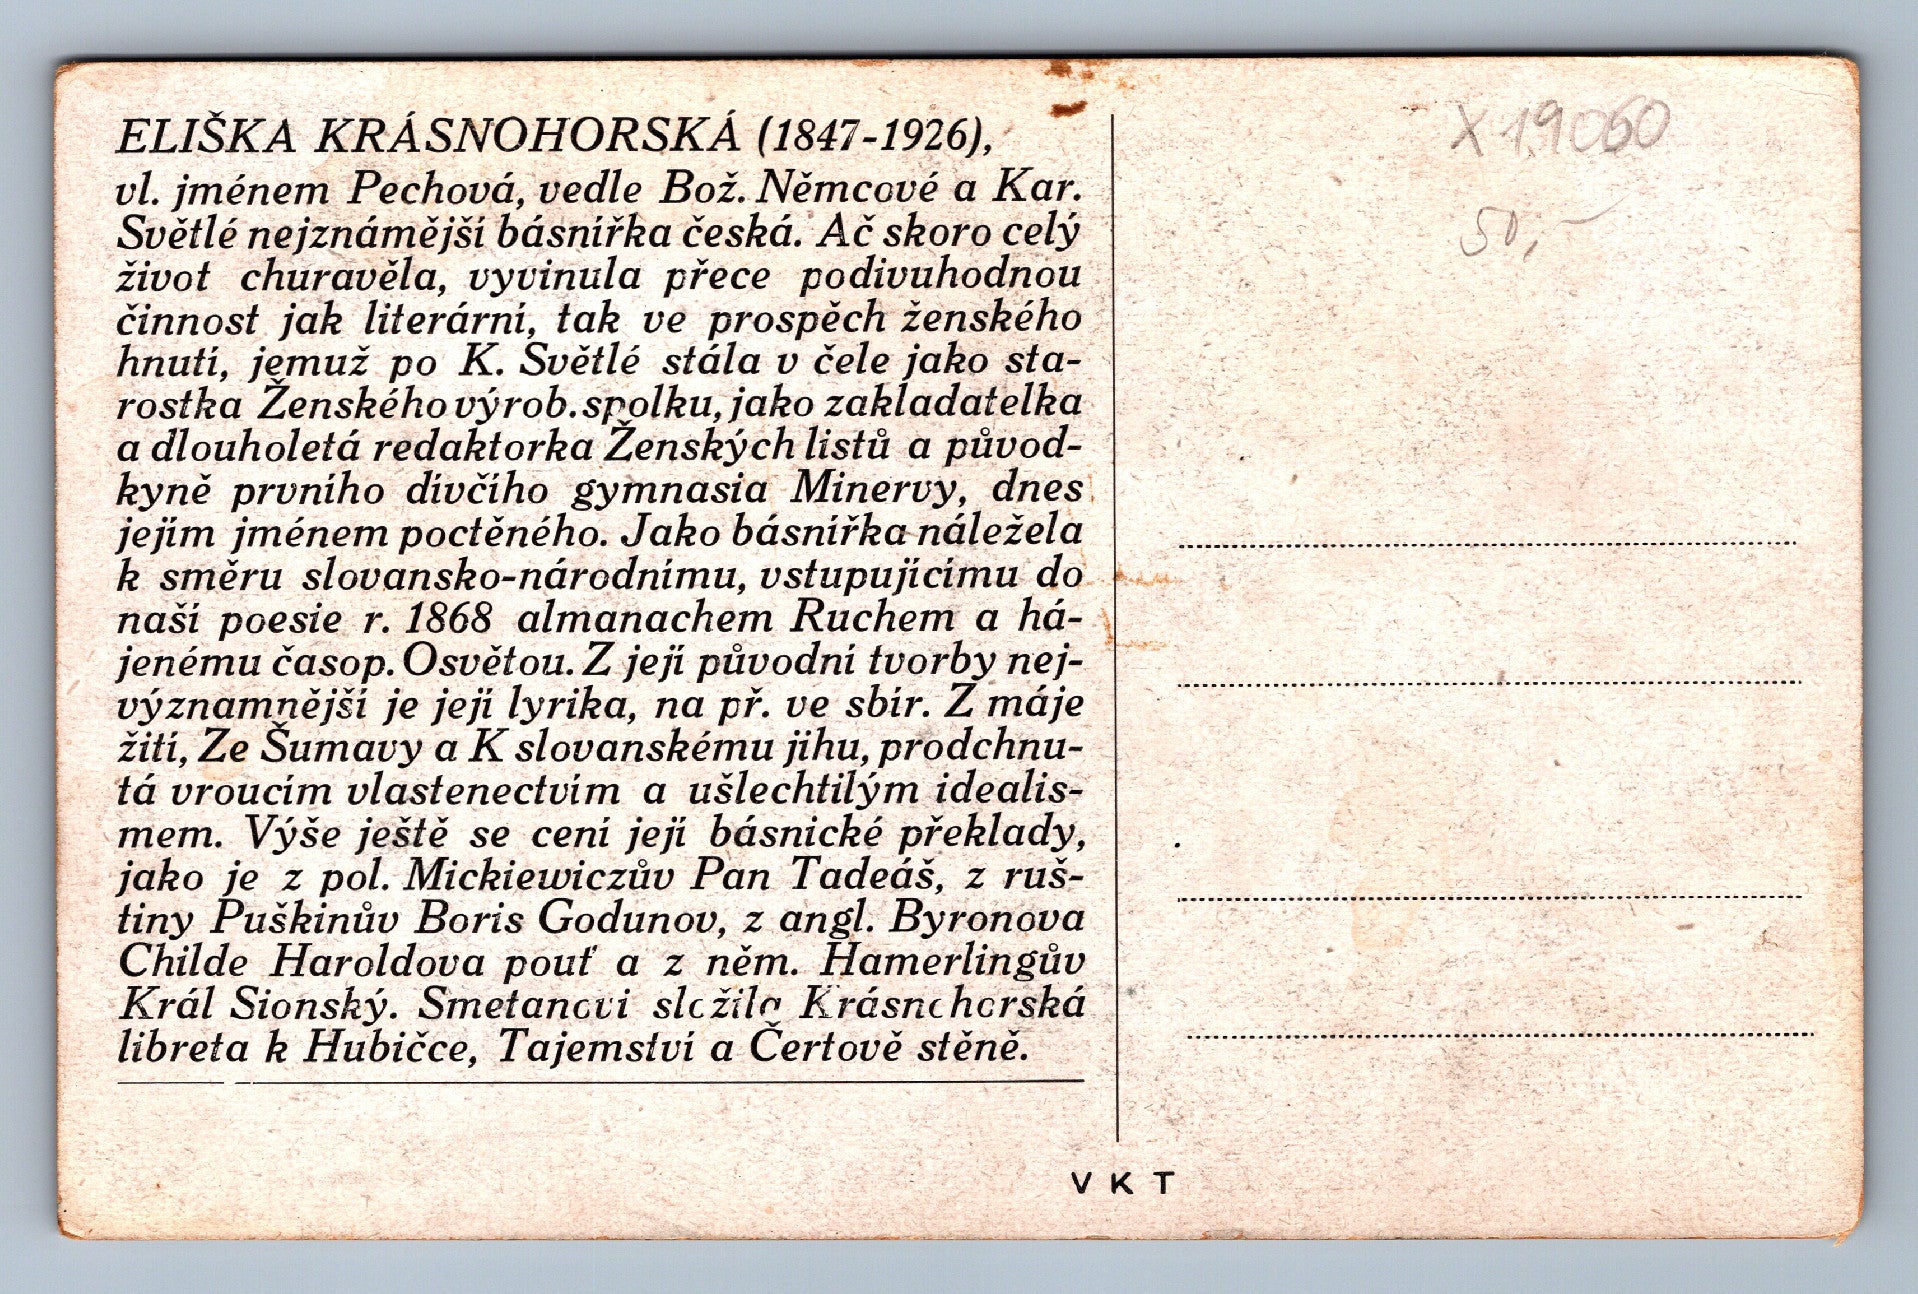 ELIŠKA KRÁSNOHORSKÁ (1847-1926),
vl. jménem Pechová, vedle Bož. Němcové a Kar.
Světlé nejznámější básnířka česká. Ač skoro celý
život churavěla, vyvinula přece podivuhodnou
činnost jak literární, tak ve prospěch ženského
hnutí, jemuž po K. Světlé stála v čele jako sta-
rostka Ženského výrob. spolku, jako zakladatelka
a dlouholetá redaktorka Ženských listů a původ-
kyně prvního dívčího gymnasia Minervy, dnes
jejím jménem poctěného. Jako básnířka náležela
k směru slovansko-národnímu, vstupujícímu do
naší poesie r. 1868 almanachem Ruchem a há-
jenému časop. Osvětou. Z její původní tvorby nej-
významnější je její lyrika, na př. ve sbír. Z máje
žití, Ze Šumavy a K slovanskému jihu, prodchnu-
tá vroucím vlastenectvím a ušlechtilým idealis-
mem. Výše ještě se cení její básnické překlady,
jako je z pol. Mickiewiczův Pan Tadeáš, z ruš-
tiny Puškinův Boris Godunov, z angl. Byronova
Childe Haroldova pouť a z něm. Hamerlingův
Král Sionský. Smetanovi složila Krásnohorská
libreta k Hubičce, Tajemství a Čertově stěně.
X 19060
50,-
V K T